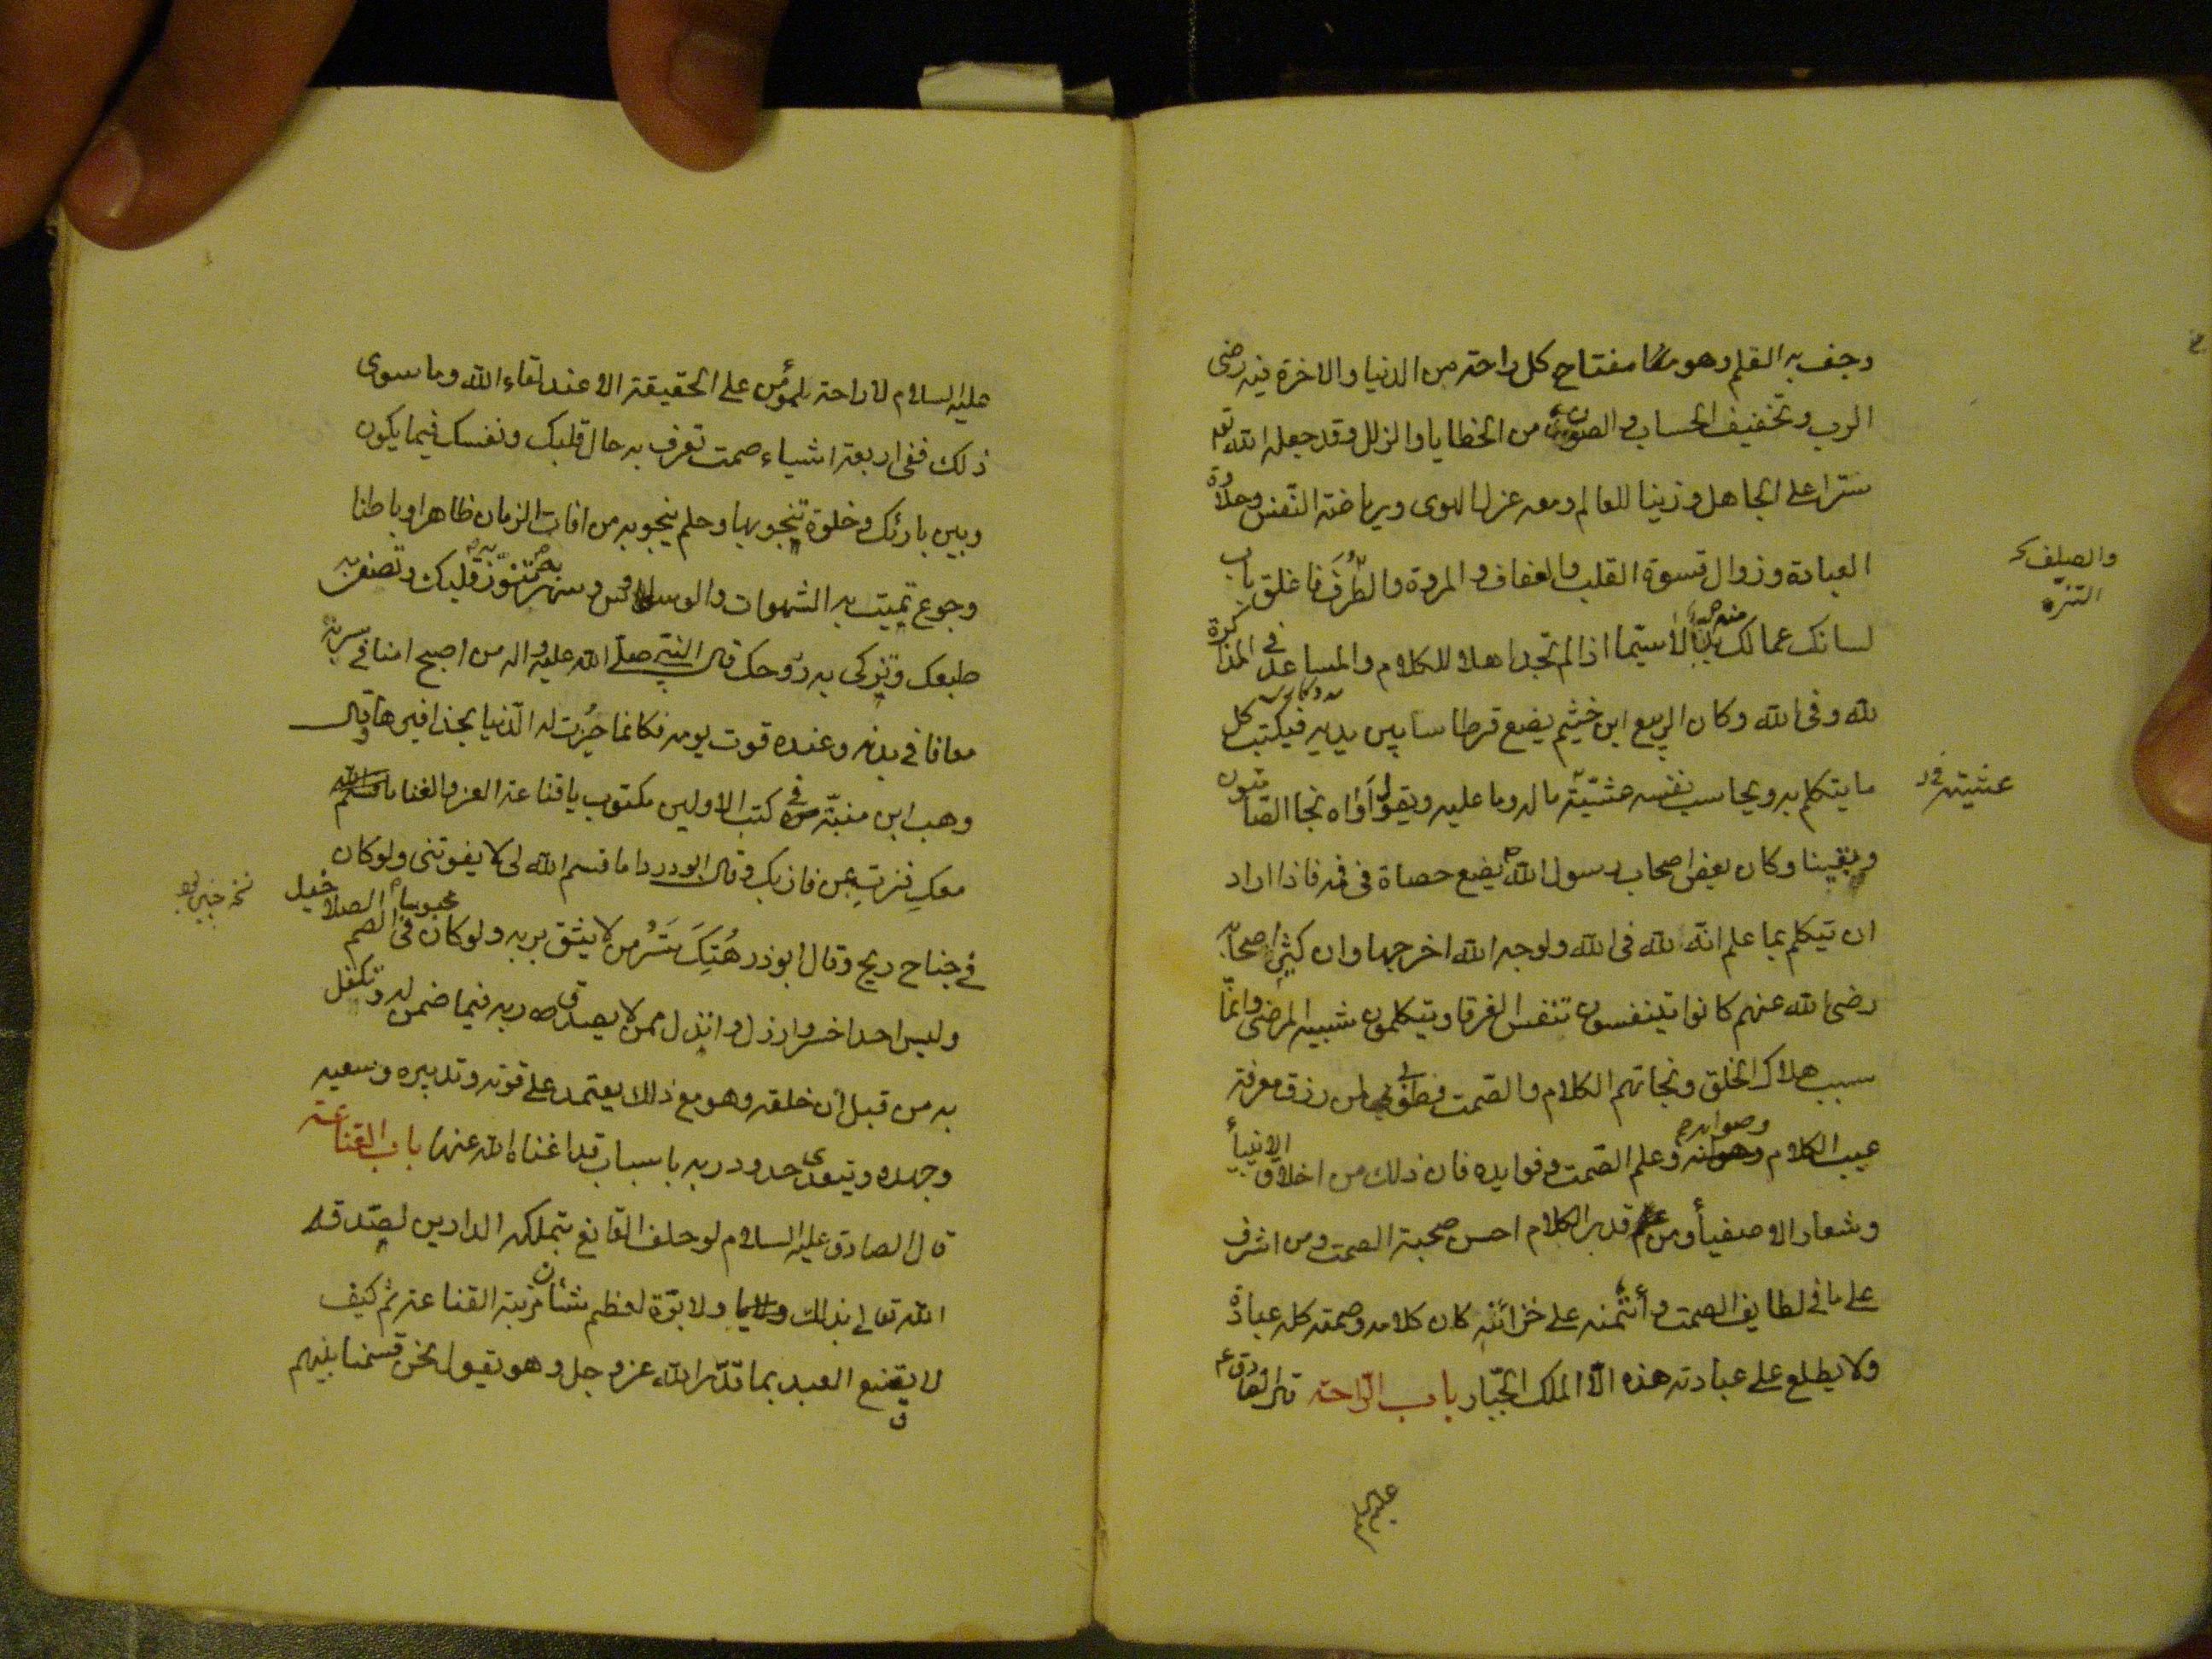 وجف به القلم وهو مفتاح كل راحة من الدنيا والاخرة فيه رضى
الرب وتخفيف الحساب والصون من الخطايا والزلل وقد جعله الله
سترا على الجاهل وزينا للعالم ومعه عزل الهوى ورياضة النفس وحلاوة
العبادة وزوال قسوة القلب والعفاف والمروة والظرف فاغلق باب
لسانك عما لك منه بد لا سيما اذا لم تجد اهلا للكلام والمساعد في المذاكرة
لله وفى الله وكان الربيع ابن خثيم يضع قرطاسا بين يديه فيكتب كل
ما يتكلم به ويحاسب نفسه عشيته ماله وما عليه ويقول اواه نجا الصامتون
وبقينا وكان بعض اصحاب رسول الله ص يضع حصاة فى فمه فاذا اراد
ان يتكلم بما علم انه لله فى الله ولوجه الله اخرجها وان كثيرا اصحابه
رضى الله عنهم كانوا يتنفسون تنفس الغرقا ويتكلمون شبيه المرضى وانما
سبب هلاك الخلق ونجاتهم الكلام والصمت فطوبى لمن رزق معرفة
عيب الكلام وصوابه وعلم الصمت وفوايده فان ذلك من اخلاق الانبيأ
وشعار الاصفيأ ومن علم قدر الكلام احسن صحبة الصمت ومن اشرف
على ما فى لطايف الصمت وأئتمنه على خزائنه كان كلامه وصمته كله عبادة
ولا يطلع على عبادته هذه الا الملك الجبار باب الراحة قال الصادق ع
والصلف
التنزه
عشيته
عليه السلام
عليه السلام لا راحة لمؤمن على الحقيقة الا عند لقاء الله وما سوى
ذلك ففى اربعة اشياء صمت تعرف به حال قلبك ونفسك فيما يكون
وبين بارئك وخلوة تنجو بها وحلم ينجو به من افات الزمان ظاهرا وباطنا
وجوع تميت به الشهوات والوسواس وسهر تنور به قلبك وتصفى به
طبعك وتزكى به روحك قال النبي صلى الله عليه واله من اصبح امنا فى سربه
معافا فى بدنه وعنده قوت يومه فكانما حيزت له الدنيا بحذافيرها وقال
وهب ابن منبه فى كتب الاولين مكتوب يا قناعة العز والغنا
معك فزت عن فاز بك وقال ابو دردا ما قسم الله لى لا يفوتنى ولو كان
فى جناح ريح وقال ابو ذر هُتِكَ سَتْرُ من لا يثق بربه ولو كان محبوسا فى الصم الصلاخيل
وليس احد اخسر وارذل وانذل ممن لا يصدق ربه فيما ضمن له وتكفل
به من قبل ان خلقه وهو مع ذلك يعتمد على قوته وتدبيره وسعيه
وجهده ويتعدى حدود ربه باسباب قد اغناه الله عنها باب القناعة
قال الصادق عليه السلام لو حلف القانع بتملكه الدارين لصدقه
الله تعالى بذلك ولابرّه لعظم شأن مرتبة القناعة ثم كيف
لا يقنع العبد بما قدر الله عز وجل وهو يقول نحن قسمنا بينهم